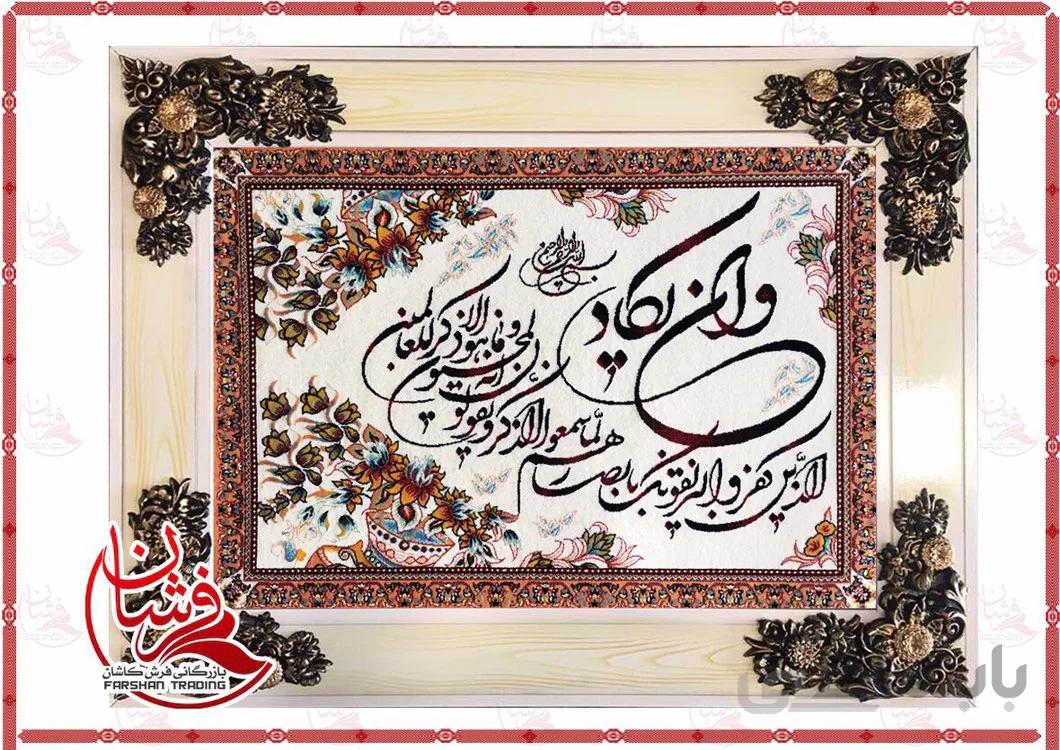 بسم الله الرحمن الرحیم
وان یکاد
الذین کفروا لیزلقونک بابصارهم لما سمعوا الذکر و یقولون
انه لمجنون
وما هو الا ذکر للعالمین
فرشان
بازرگانی فرش کاشان
FARSHAN TRADING